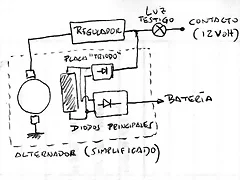 LUZ
TESTIGO
REGULADOR
CONTACTO
(12 VOLT)
PLACA "TRIODO"
BATERÍA
DIODOS PRINCIPALES
ALTERNADOR (SIMPLIFICADO)